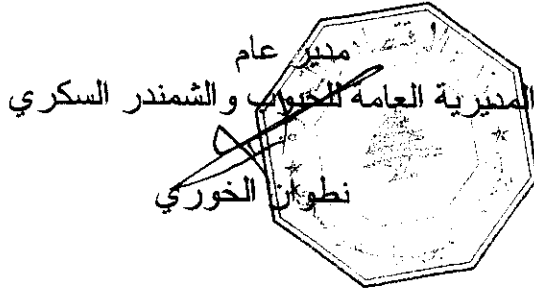 مدير عام
المديرية العامة للحبوب والشمندر السكري
نطوان الخوري